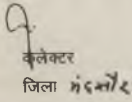 कलेक्टर
जिला मंदसौर